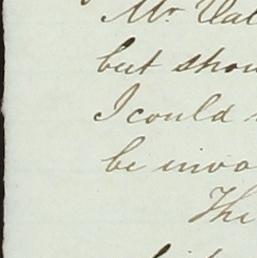 Mr. Val
but shou
I could
be invo
The